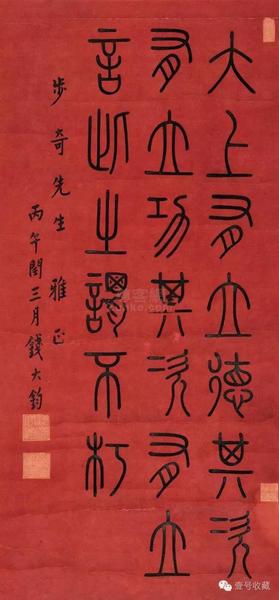 大上有立德其次
有立功其次有立
言此之謂不朽
步奇先生雅正
丙午閏三月錢大鈞
壹号收藏